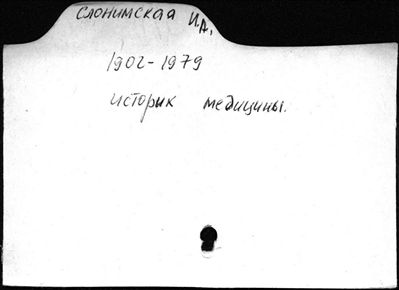 Слонимская И.А.
1902-1979
историк медицины.